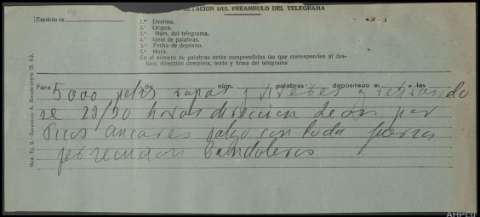 ACEPTACION DEL PREAMBULO DEL TELEGRAMA
Expedido le
1.º Destino.
2.º Origen.
3.º Núm. del telegrama.
4.º Total de palabras.
5.º Fecha de depósito.
6.º Hora.
En el número de palabras están comprendidas las que corresponden al des-
tino, dirección completa, texto y firma del telegrama
Para de núm. palabras depositado el a las
5000 pstas ropas y víveres
se 23/30 horas dirección León por
Picos Ancares salgo con toda fuerza
persecución bandoleros